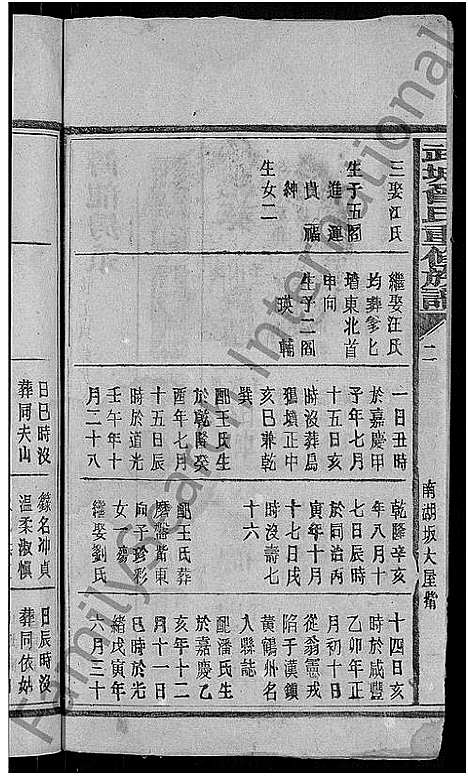 武城曾氏重修族譜
二
南湖坂大屋
三娶江氏
生子五閣
進運
貴福
紳
生女二
繼娶汪氏
均葬爹匕
增東北首
申向
生子二閣
瑛輔
一日丑時
於嘉慶甲
子年七月
十五日亥
時沒葬烏
猖墳正中
亥巳兼乾
巽
配王氏生
於乾隆癸
酉年七月
十五日辰
時於道光
壬午年十
月二十八
乾隆辛亥
年八月十
七日辰時
於同治丙
寅年十月
十七日戌
時沒壽七
十六
配王氏葬
向子珍彩
女一
繼娶劉氏
十四日亥
時於咸豐
乙卯年正
月初十日
從翁憲戎
陷于漢鎮
黃鶴州名
入縣誌
配潘氏生
於嘉慶乙
亥年十二
月十一日
巳時於光
緒戊寅年
六月三十
日巳時沒
葬同夫山
名冲貞
溫柔淑慎
日辰時沒
葬同依姑
FamilySearch International